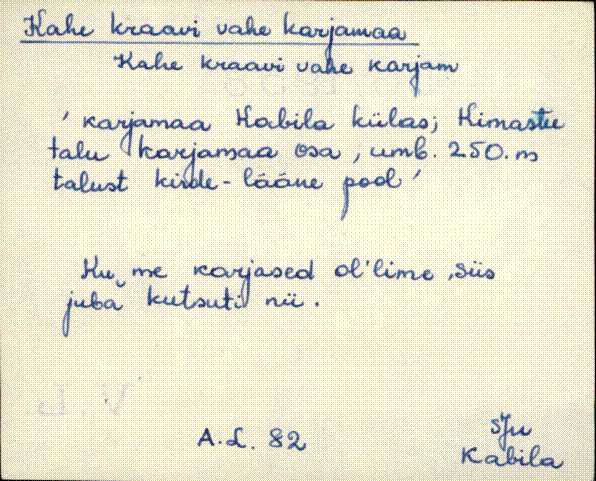 Kahe kraavi vahe karjamaa
Kahe kraavi vahe karjam
' karjamaa Kabila külas; Kimastu
talu karjamaa osa, umb. 250. m
talust kirde-lääne pool '
Ku me karjased ol'lime, siis
juba kutsuti nii.
A.L. 82
SJn
Kabila